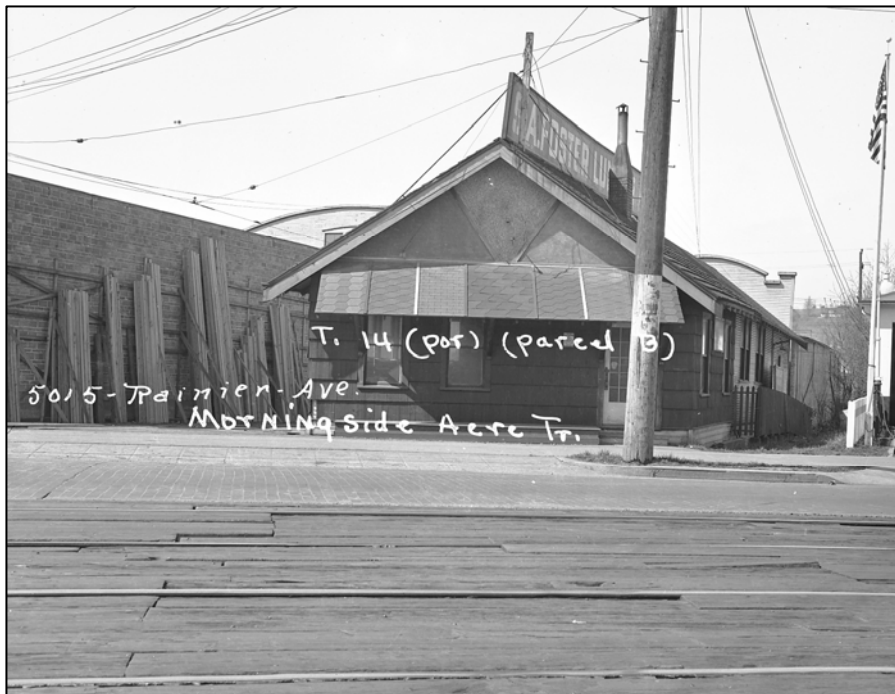 A. FOSTER LU
T. 14 (por) (parcel B)
5015-Rainier-Ave.
Morningside Acre Tr.